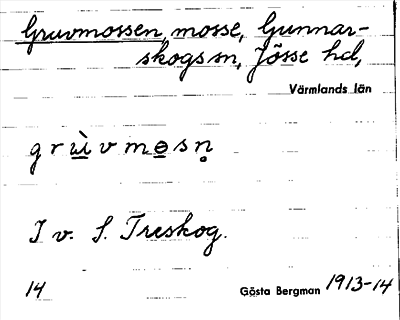 Gruvmossen, mosse, Gunnar-
skogs sn, Jösse hd,
Värmlands län
grùvmosn̥
I v. S. Treskog.
14 Gösta Bergman 1913-14